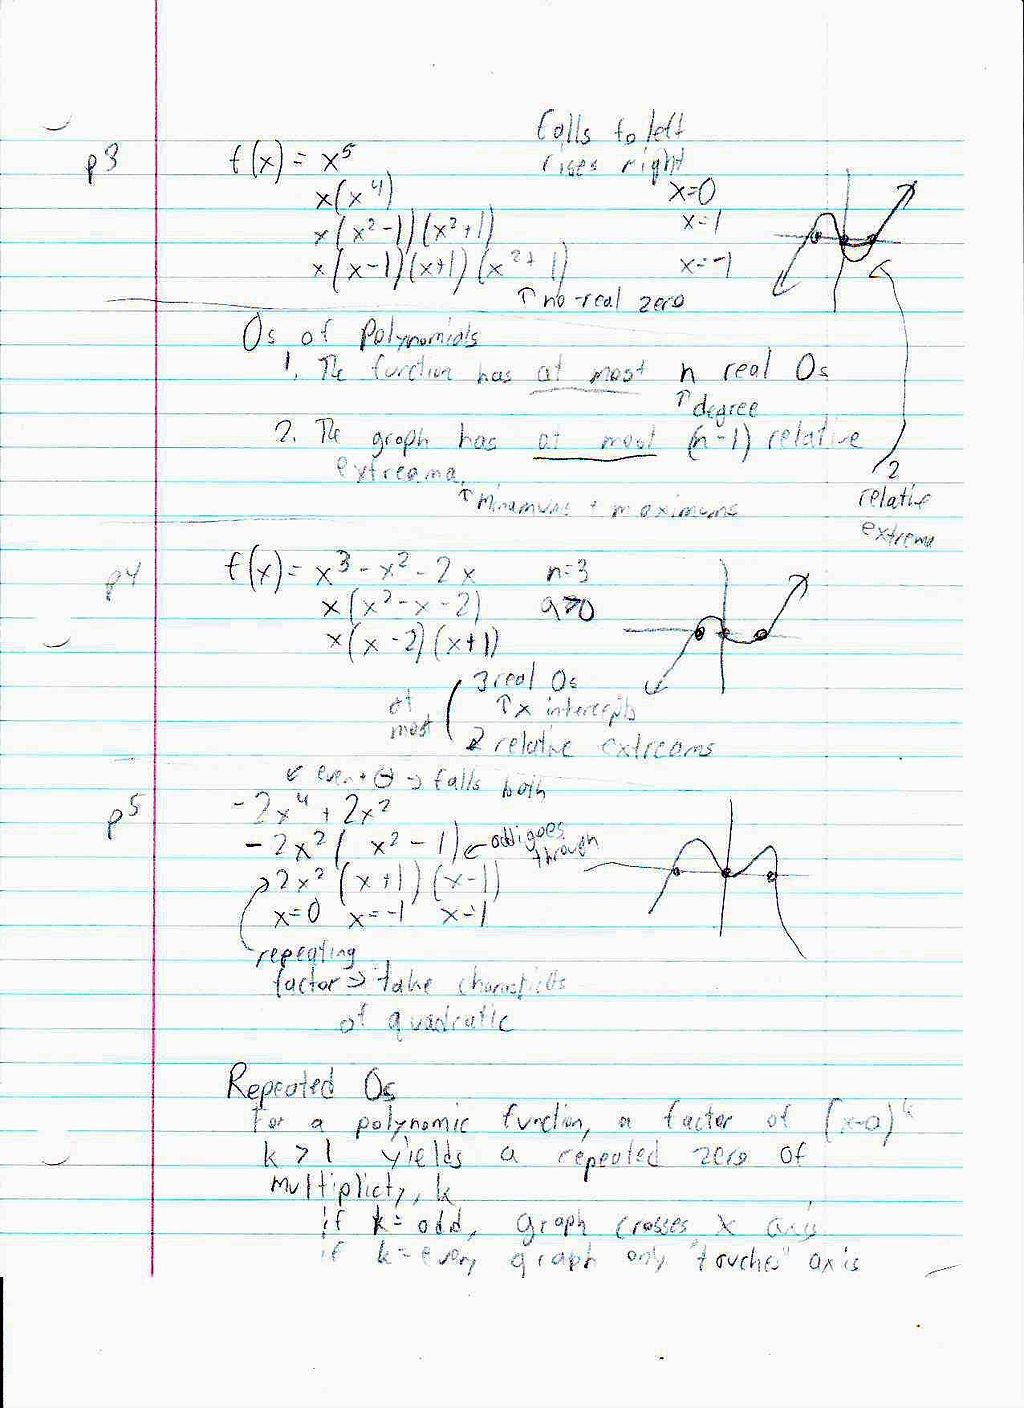 falls to left
rises right
p3 f(x) = x⁵
x(x⁴) x=0
x(x²-1)(x²+1) x=1
x(x-1)(x+1)(x²+1) x=-1
↑ no real zero
0s of Polynomials
1. The function has at most n real 0s
↑ degree
2. The graph has at most (n-1) relative
extreama
↑ minamums + maximums
2
relative
extrema
p4 f(x) = x³ - x² - 2x n=3
x(x²-x-2) a>0
x(x-2)(x+1)
at most ( 3 real 0s
↑ x intercepts
2 relative extreams
↙ even + ⊖ → falls both
p5 -2x⁴ + 2x²
-2x²(x²-1) ← odd goes through
2x²(x+1)(x-1)
x=0 x=-1 x=1
repeating
factor → take
of quadratic
Repeated 0s
For a polynomic function, a factor of (x-a)ᵏ
k > 1 yields a repeated zero of
multiplicty, k
if k = odd, graph crosses x axis
if k = even, graph only "touches" axis